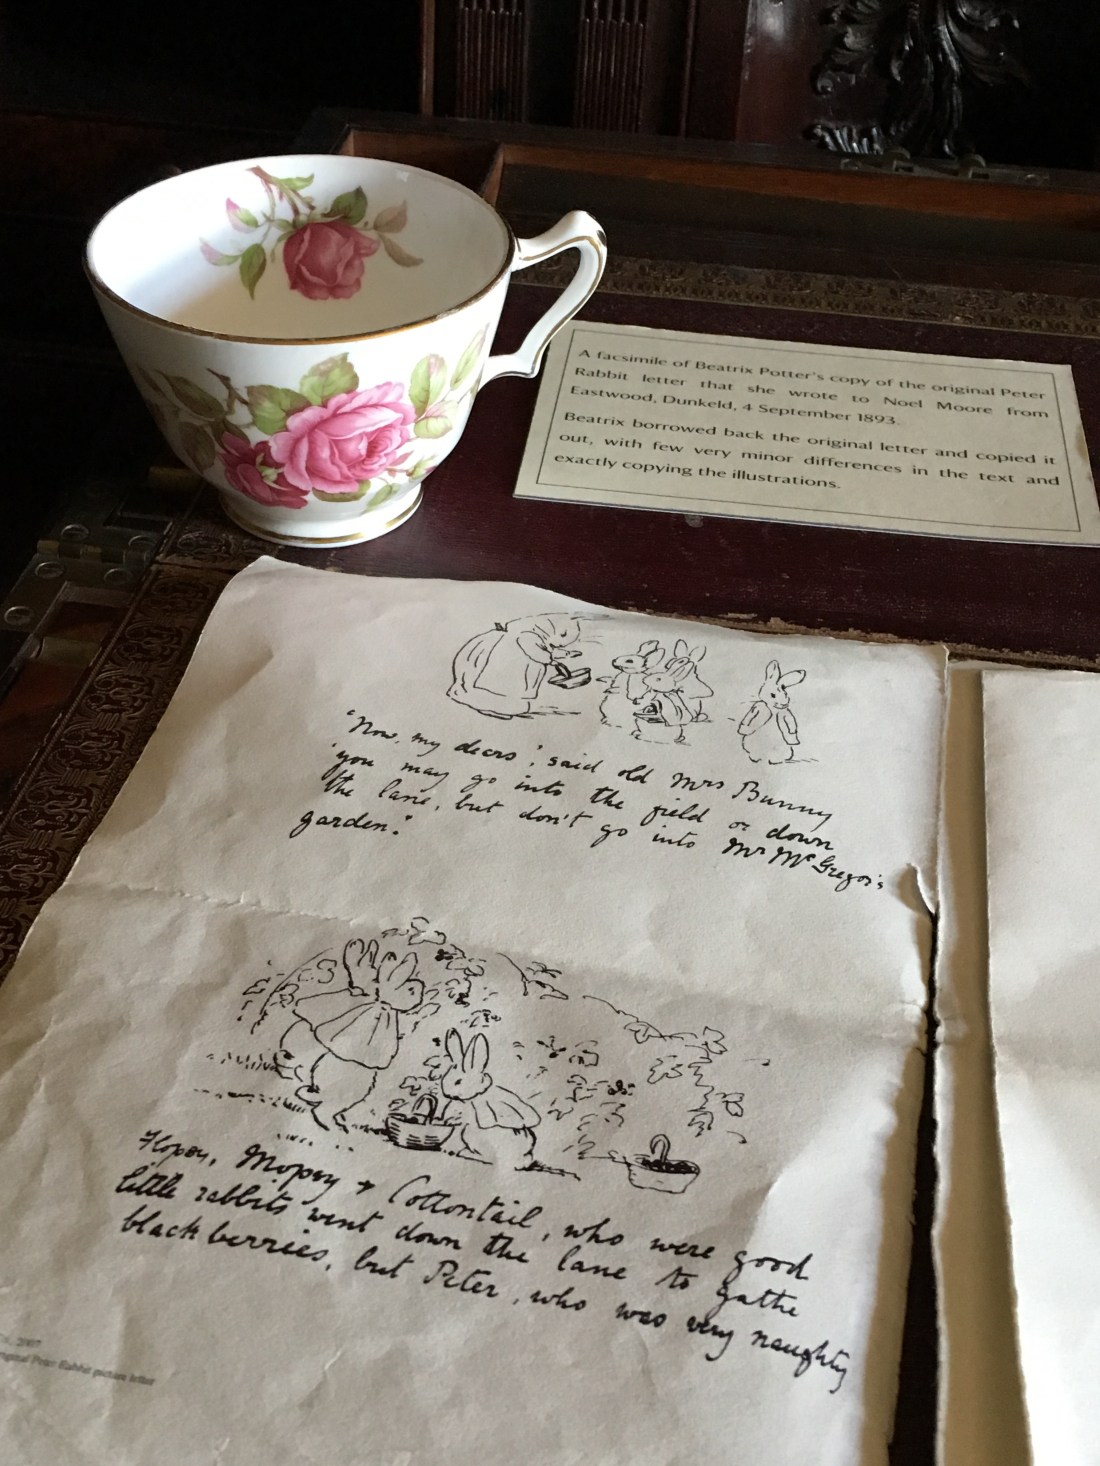 A facsimile of Beatrix Potter's copy of the original Peter
Rabbit letter that she wrote to Noel Moore from
Eastwood, Dunkeld, 4 September 1893.
Beatrix borrowed back the original letter and copied it
out, with few very minor differences in the text and
exactly copying the illustrations.
'Now, my dears', said old Mrs Bunny
'you may go into the field or down
the lane, but don't go into Mr McGregor's
garden.'
Flopsy, Mopsy + Cottontail, who were good
little rabbits went down the lane to gather
blackberries, but Peter, who was very naughty
2007
original Peter Rabbit picture letter